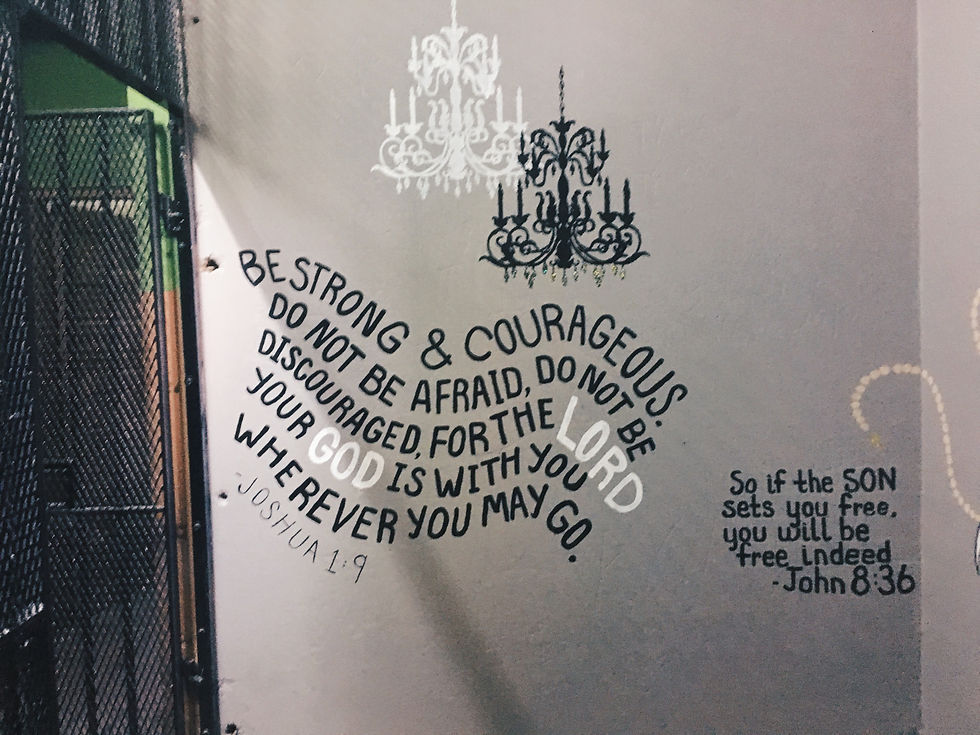 BE STRONG & COURAGEOUS.
DO NOT BE AFRAID, DO NOT BE
DISCOURAGED, FOR THE LORD
YOUR GOD IS WITH YOU
WHEREVER YOU MAY GO.
-JOSHUA 1:9
So if the SON
sets you free,
you will be
free indeed
-John 8:36